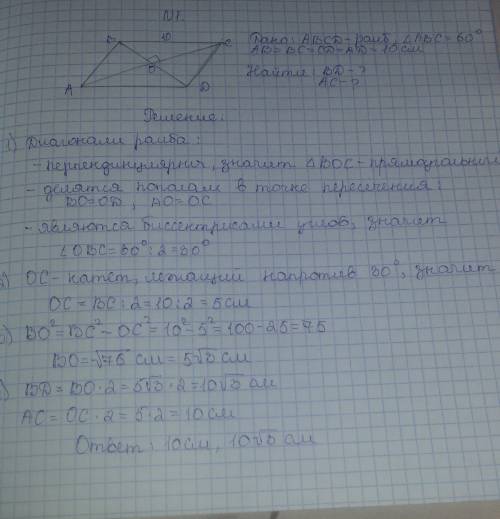 N1.
B 10 C
O
A D
Дано: ABCD-ромб, ∠ABC=60°
AB=BC=CD=AD=10см
Найти: BD-?
AC-?
Решение:
1) Диагонали ромба:
-перпендикулярны, значит △BOC-прямоугольный
- делятся пополам в точке пересечения:
BO=OD, AO=OC
-являются биссектрисами углов, значит
∠OBC=60°:2=30°
OC-катет, лежащий напротив 30°, значит
OC=BC:2=10:2=5см
BO²=BC²-OC²=10²-5²=100-25=75
BO=√75 см=5√3 см
BD=BO·2=5√3·2=10√3 см
AC=OC·2=5·2=10см
Ответ: 10см, 10√3 см